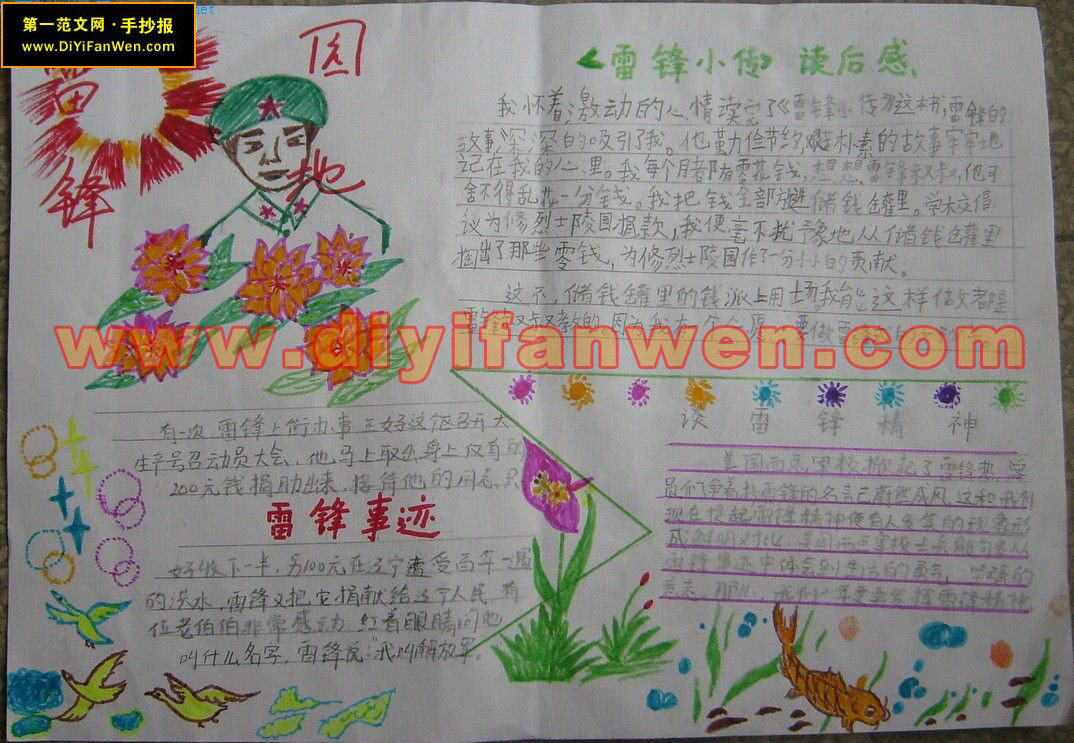 第一范文网·手抄报
www.DiYiFanWen.com
net
雷
锋
园
地
《雷锋小传》读后感
我怀着激动的心情读完了《雷锋小传》这本书,雷锋的
故事深深的吸引了我。他勤俭节约,朴素的故事牢牢地
记在我的心里。我每个月都有零花钱,想想雷锋叔叔,他可
舍不得乱花一分钱。我把钱全部放进储钱罐里。学校倡
议为修烈士陵园捐款,我便毫不犹豫地从储钱罐里
掏出了那些零钱,为修烈士陵园作了一分小小的贡献。
这不,储钱罐里的钱派上用场我能这样做都是
雷锋叔叔教的,因为我有一个心愿,要做雷锋
www.diyifanwen.com
有一次,雷锋上街办事,正好这个召开大
生产号召动员大会,他马上取出身上仅有的
200元钱捐助出来,接待他的同志只
雷锋事迹
好收下一半,另100元在辽宁遭受百年一遇
的洪水,雷锋又把它捐献给辽宁人民 有
位老伯伯非常感动,红着眼睛问他
叫什么名字,雷锋说:"我叫解放军。
谈 雷 锋 精 神
美国西点军校掀起了雷锋热,学
员们争着抄雷锋的名言已蔚然成风,这和我们
现在提起雷锋精神便有人发笑的现象形
成鲜明对比,美国西点军校士兵能
雷锋事迹中体会到生活的勇气,坚强的